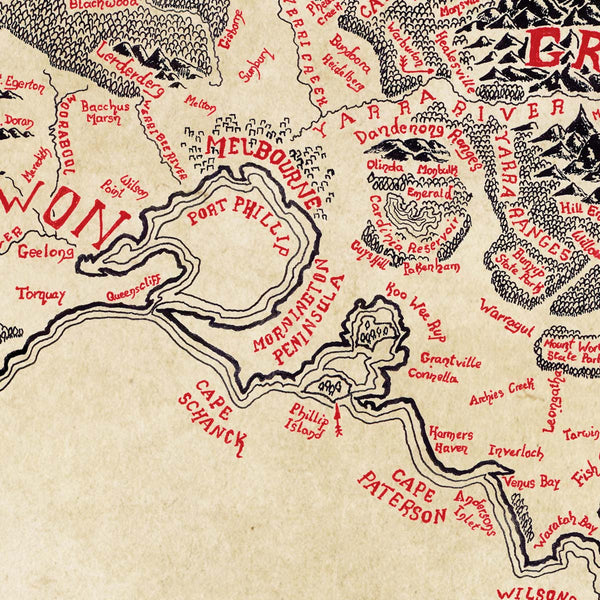 Blackwood
Gisborne
Lerderderg
Sunbury
MERRI CREEK
Creek
Bundoora
Heidelberg
Warburton
Healesville
GR
Egerton
Doran
MOORABOOL
Bacchus
Marsh
Melton
WERRIBEE RIVER
Meredith
YARRA RIVER
Dandenong
Ranges
Olinda
Monbulk
Emerald
Cardinia Reservoir
Guys Hill
Pakenham
YARRA
RANGES
Hill E
Bunyip
State Park
MELBOURNE
Wilson
Point
WON
PORT PHILLIP
VER
Geelong
Torquay
Queenscliff
MORNINGTON
PENINSULA
Koo Wee Rup
Warragul
Mount Wor
State Park
Grantville
Corinella
Archies Creek
Leongatha
CAPE
SCHANCK
Phillip
Island
Harmers
Haven
Inverloch
Tarwin
Fish
Venus Bay
CAPE
PATERSON
Andersons
Inlet
Waratah Bay
WILSONS